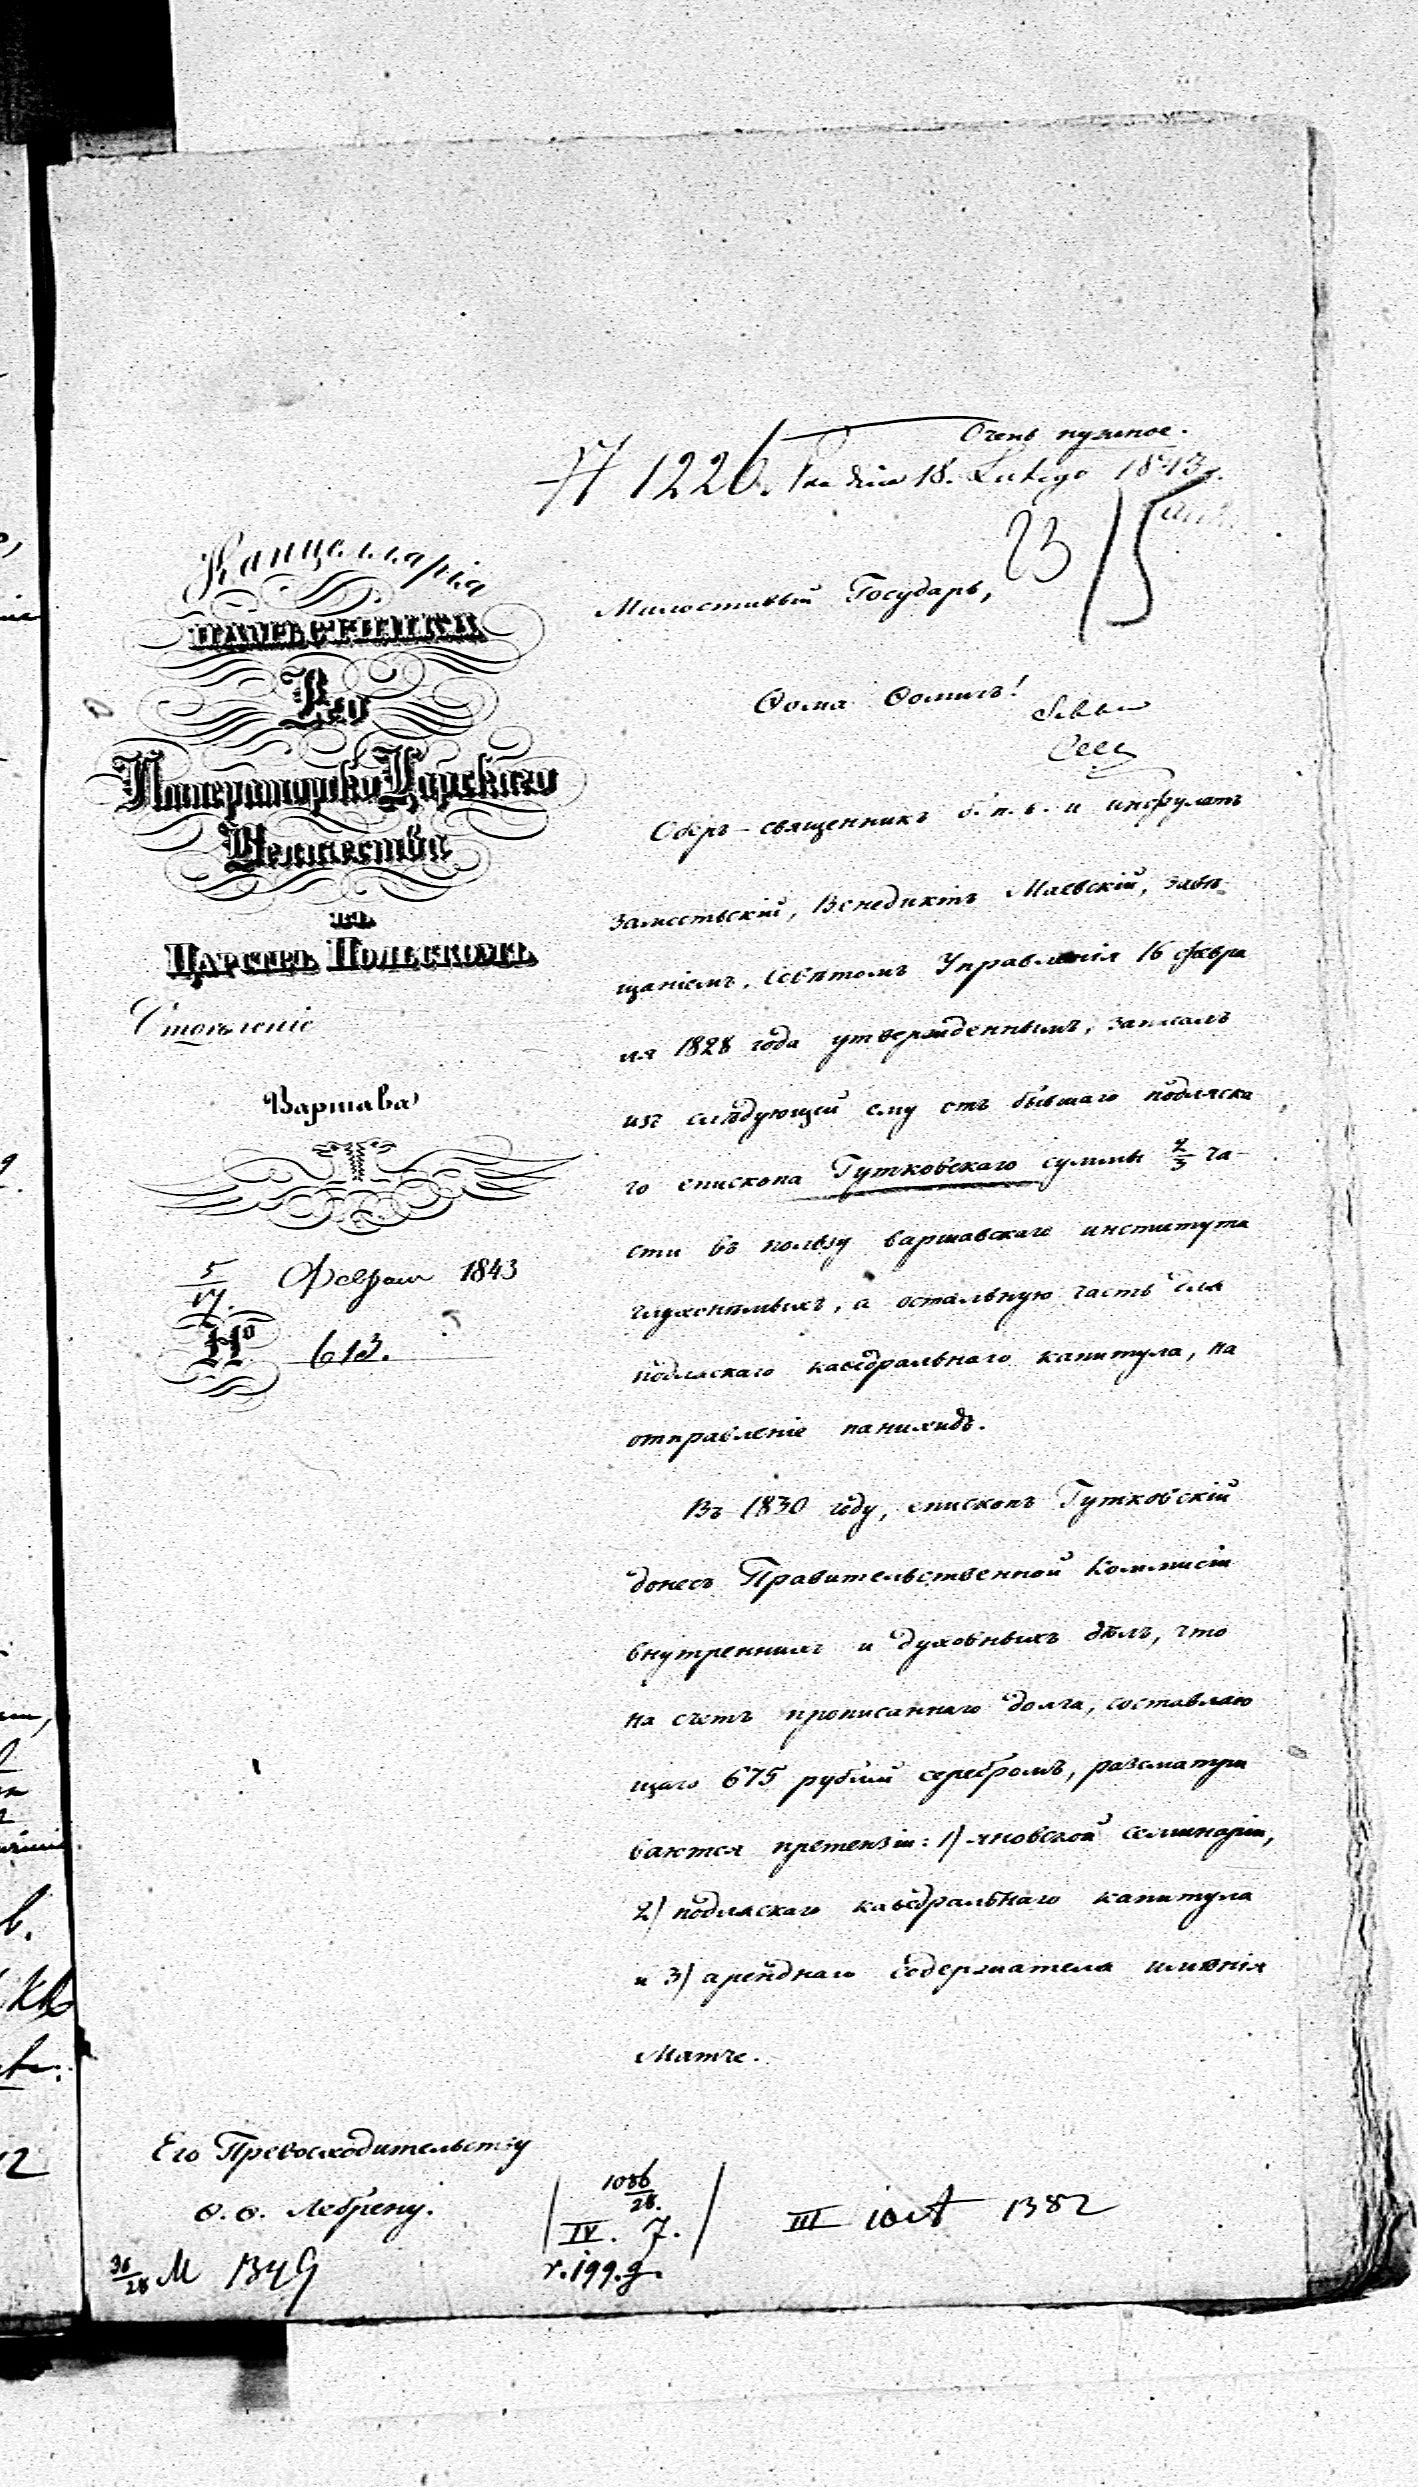 Очень нужное.
№ 1226. Pr. dnia 18. Lutego 1843 r.
23/15
Канцеллярія
НАМѢСТНИКА
Его
Императорско Царскаго
Величества
въ
ЦАРСТВѢ ПОЛЬСКОМЪ
Отдѣленіе
Варшава
5/17. Февраля 1843
№ 613.
Милостивый Государь,
Ѳома Ѳомичъ!
Оберъ-священникъ б. п. в. и инфулатъ
Замостьскій, Венедиктъ Маевскій, завѣ
щаніемъ, Совѣтомъ Управленія 16 февра
ля 1828 года утвержденнымъ, записалъ
изъ слѣдующей ему отъ бывшаго подляска
го епископа Гутковскаго суммы 2/3 ча-
сти въ пользу варшавскаго института
глухонѣмыхъ, а остальную часть для
подляскаго каѳедральнаго капитула, на
отправленіе панихидъ.
Въ 1830 году, епископъ Гутковскій
донесъ Правительственной Коммисіи
внутреннихъ и духовныхъ дѣлъ, что
на счетъ прописаннаго долга, составляю
щаго 675 рублей серебромъ, разсматри
ваются претензіи: 1) яновской семинаріи,
2) подляскаго каѳедральнаго капитула
и 3) аренднаго содержателя имѣнія
Матче.
Его Превосходительству
Ѳ. Ѳ. Лебрену.
1086/28.
IV. 7.
r. 199. g.
III 1382
36/28 M 1349